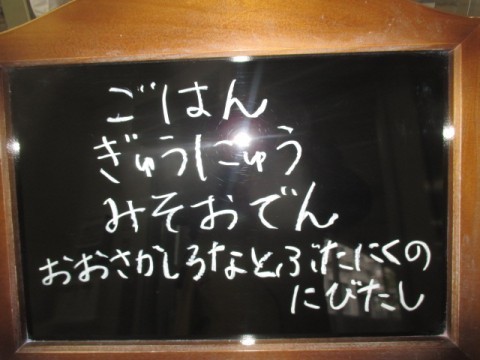 ごはん
ぎゅうにゅう
みそおでん
おおさかしろなとぶたにくの
にびたし